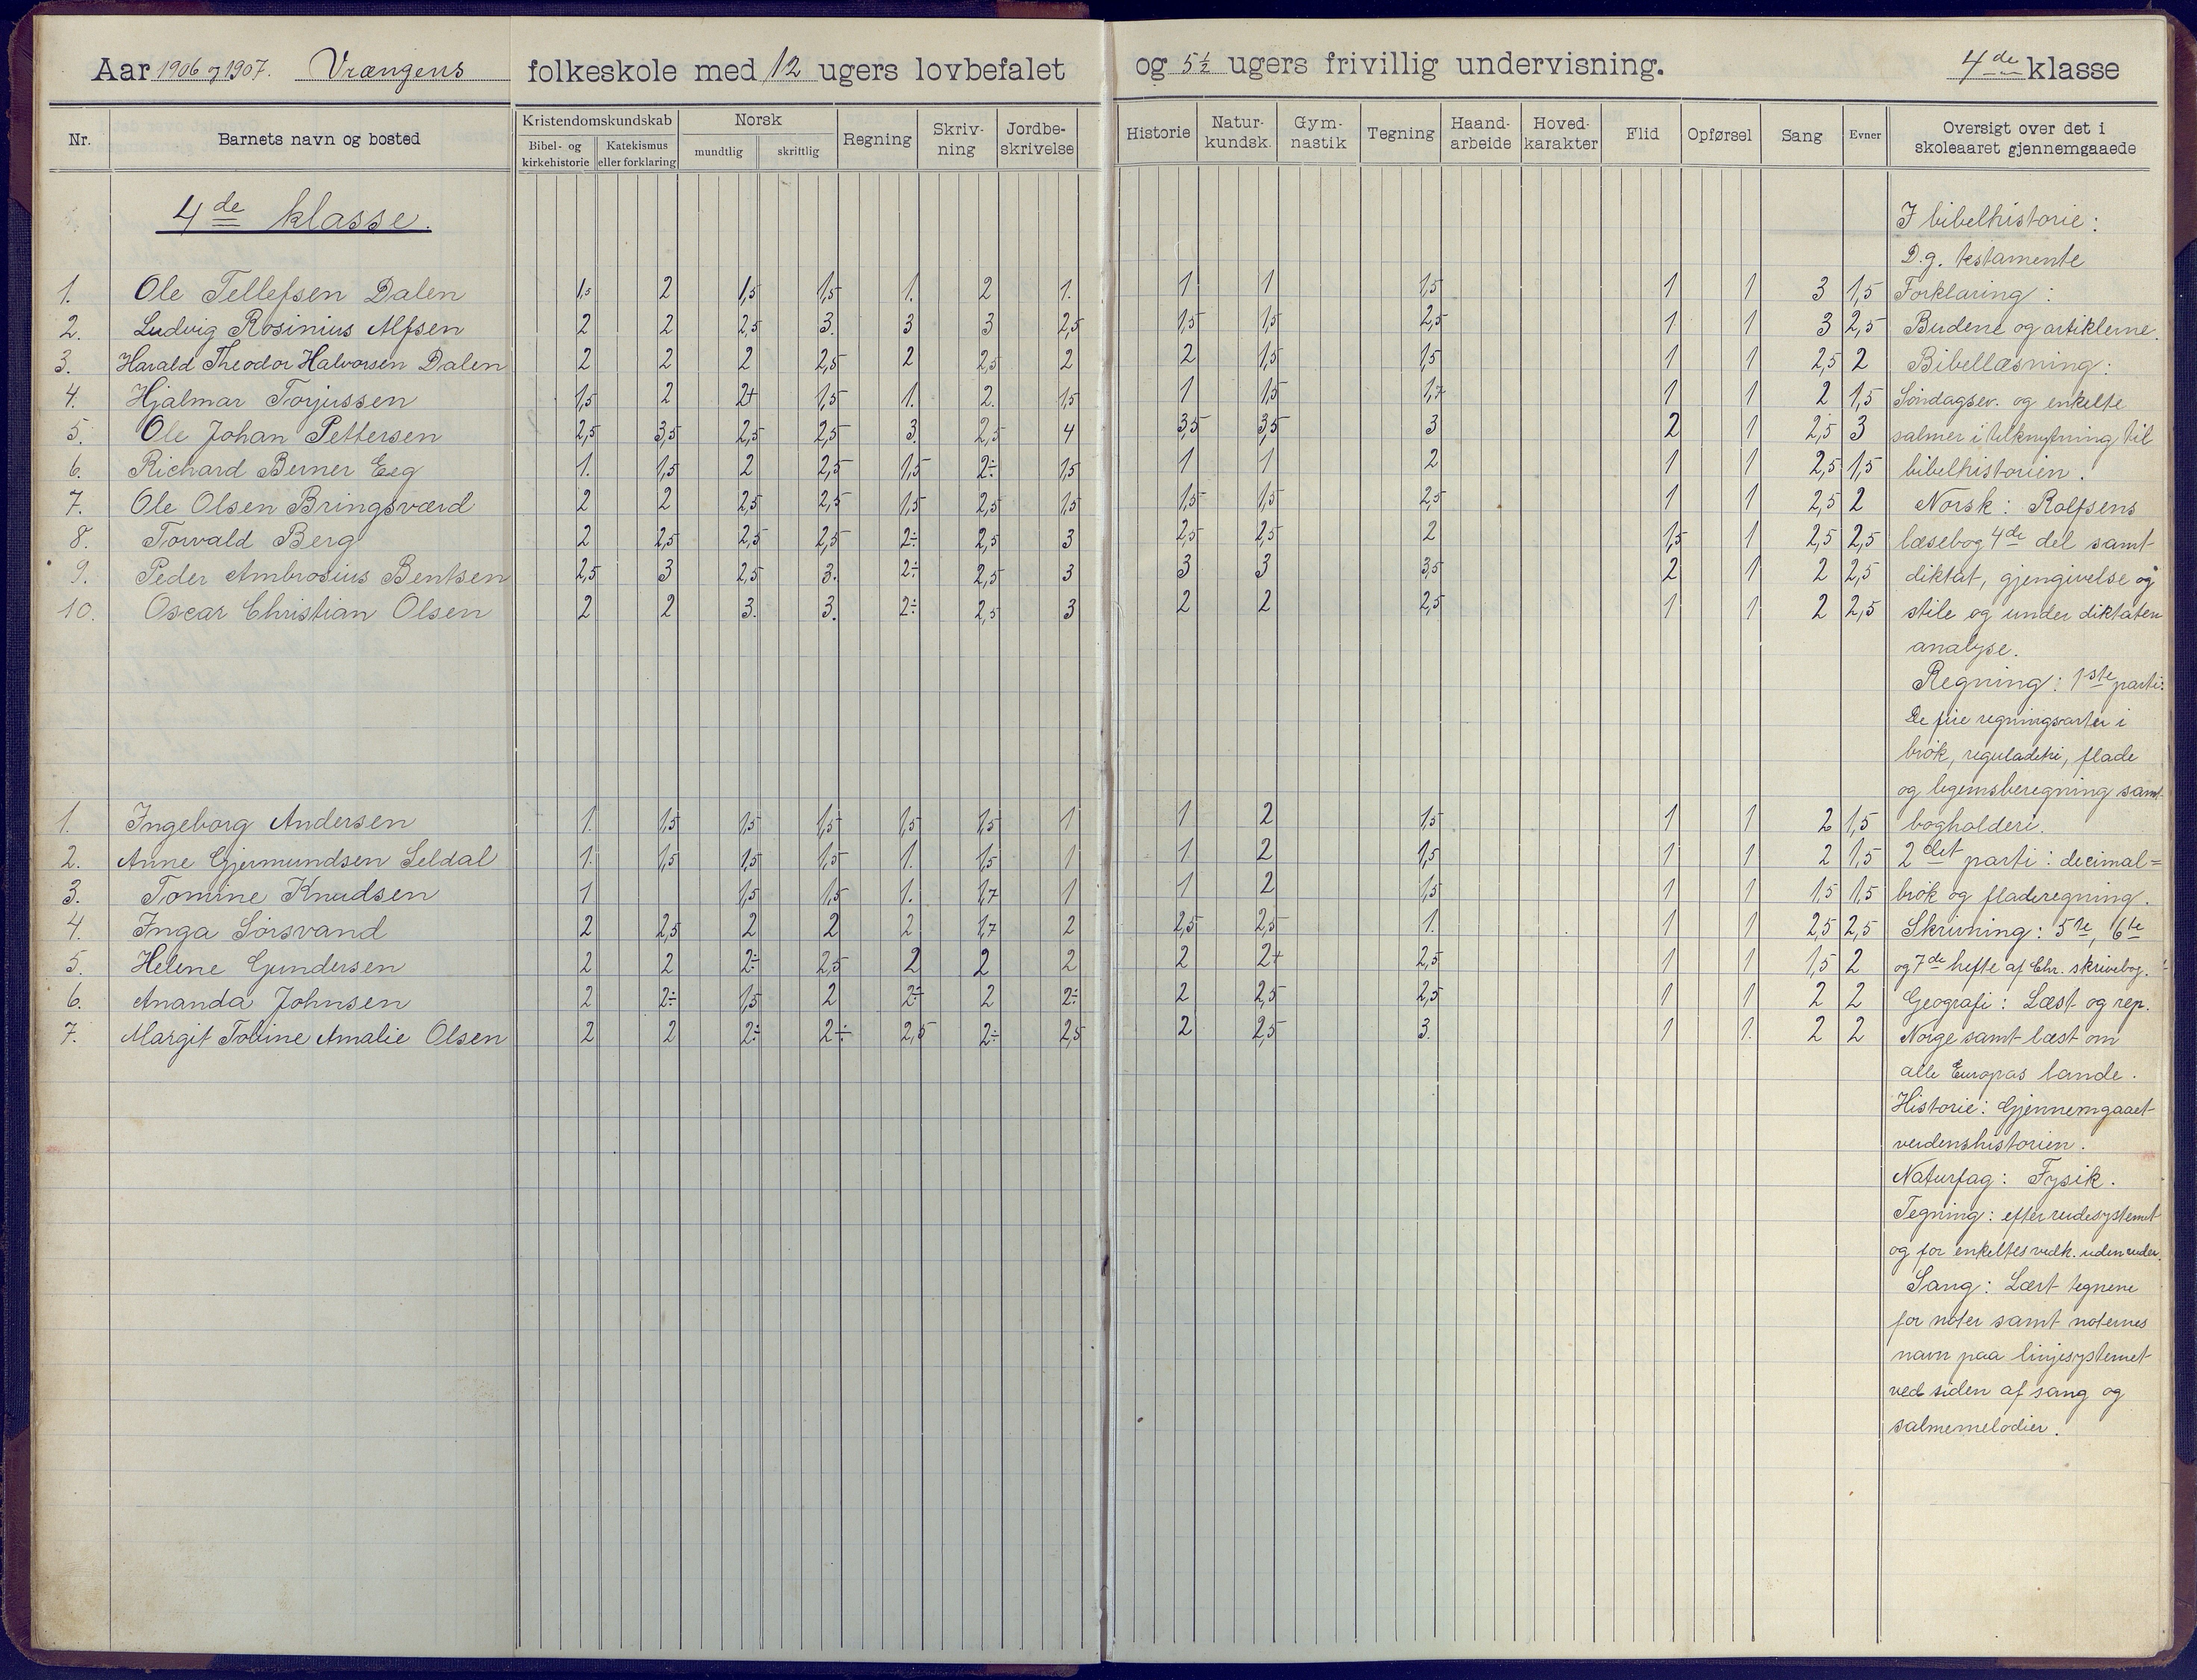 Aar 1906 og 1907. Vrængens folkeskole med 12 ugers lovbefalet og 5½ ugers frivillig undervisning. 4de klasse
Nr. Barnets navn og bosted Kristendomskundskab Norsk Regning Skriv-ning Jordbe-skrivelse Historie Natur-kundsk. Gym-nastik Tegning Haand-arbeide Hoved-karakter Flid Opførsel Sang Evner Oversigt over det i skoleaaret gjennemgaaede
Bibel- og kirkehistorie Katekismus eller forklaring mundtlig skriftlig
4de klasse.
1. Ole Tellefsen Dalen 1,5 2 1,5 1,5 1. 2 1. 1 1 1,5 1 1 3 1,5
2. Ludvig Rosinius Alfsen 2 2 2,5 3. 3 3 2,5 1,5 1,5 2,5 1 1 3 2,5
3. Harald Theodor Halvorsen Dalen 2 2 2 2,5 2 2,5 2 2 1,5 1,5 1 1 2,5 2
4. Hjalmar Torjussen 1,5 2 2+ 1,5 1. 2. 1,5 1 1,5 1,7 1 1 2 1,5
5. Ole Johan Pettersen 2,5 3,5 2,5 2,5 3. 2,5 4 3,5 3,5 3 2 1 2,5 3
6. Richard Berner Eeg 1. 1,5 2 2,5 1,5 2÷ 1,5 1 1 2 1 1 2,5 1,5
7. Ole Olsen Bringsværd 2 2 2,5 2,5 1,5 2,5 1,5 1,5 1,5 2,5 1 1 2,5 2
8. Torvald Berg 2 2,5 2,5 2,5 2÷ 2,5 3 2,5 2,5 2 1,5 1 2,5 2,5
9. Peder Ambrosius Bentsen 2,5 3 2,5 3. 2÷ 2,5 3 3 3 3,5 2 1 2 2,5
10. Oscar Christian Olsen 2 2 3. 3. 2÷ 2,5 3 2 2 2,5 1 1 2 2,5
1. Ingeborg Andersen 1. 1,5 1,5 1,5 1,5 1,5 1 1 2 1,5 1 1 2 1,5
2. Anne Gjermundsen Seldal 1. 1,5 1,5 1,5 1. 1,5 1 1 2 1,5 1 1 2 1,5
3. Tomine Knudsen 1 1,5 1,5 1. 1,7 1 1 2 1,5 1 1 1,5 1,5
4. Inga Sörsvand 2 2,5 2 2 2 1,7 2 2,5 2,5 1. 1 1 2,5 2,5
5. Helene Gundersen 2 2 2÷ 2,5 2 2 2 2 2+ 2,5 1 1 1,5 2
6. Ananda Johnsen 2 2÷ 1,5 2 2÷ 2 2÷ 2 2,5 2,5 1 1 2 2
7. Margit Tomine Amalie Olsen 2 2 2÷ 2÷ 2,5 2÷ 2,5 2 2,5 3. 1 1. 2 2
I bibelhistorie:
D.g. testamente
Forklaring:
Budene og artiklerne.
Bibellæsning:
Söndagsev. og enkelte
salmer i tilknytning til
bibelhistorien.
Norsk: Rolfsens
læsebog 4de del samt
diktat, gjengivelse og
stile og under diktaten
analyse.
Regning: 1ste parti:
De fire regningsarter i
brök, reguladetri, flade
og legemsberegning samt
bogholderi.
2det parti: decimal=
brök og fladeregning.
Skrivning: 5te, 6te
og 7de hefte af Chr. skrivebog.
Geografi: Læst og rep.
Norge samt læst om
alle Europas lande.
Historie: Gjennemgaaet
verdenshistorien.
Naturfag: Fysik.
Tegning: efter rudesystemet
og for enkeltes vedk. uden ruder.
Sang: Lært tegnene
for noter samt noternes
navn paa linjesystemet
ved siden af sang og
salmemelodier.